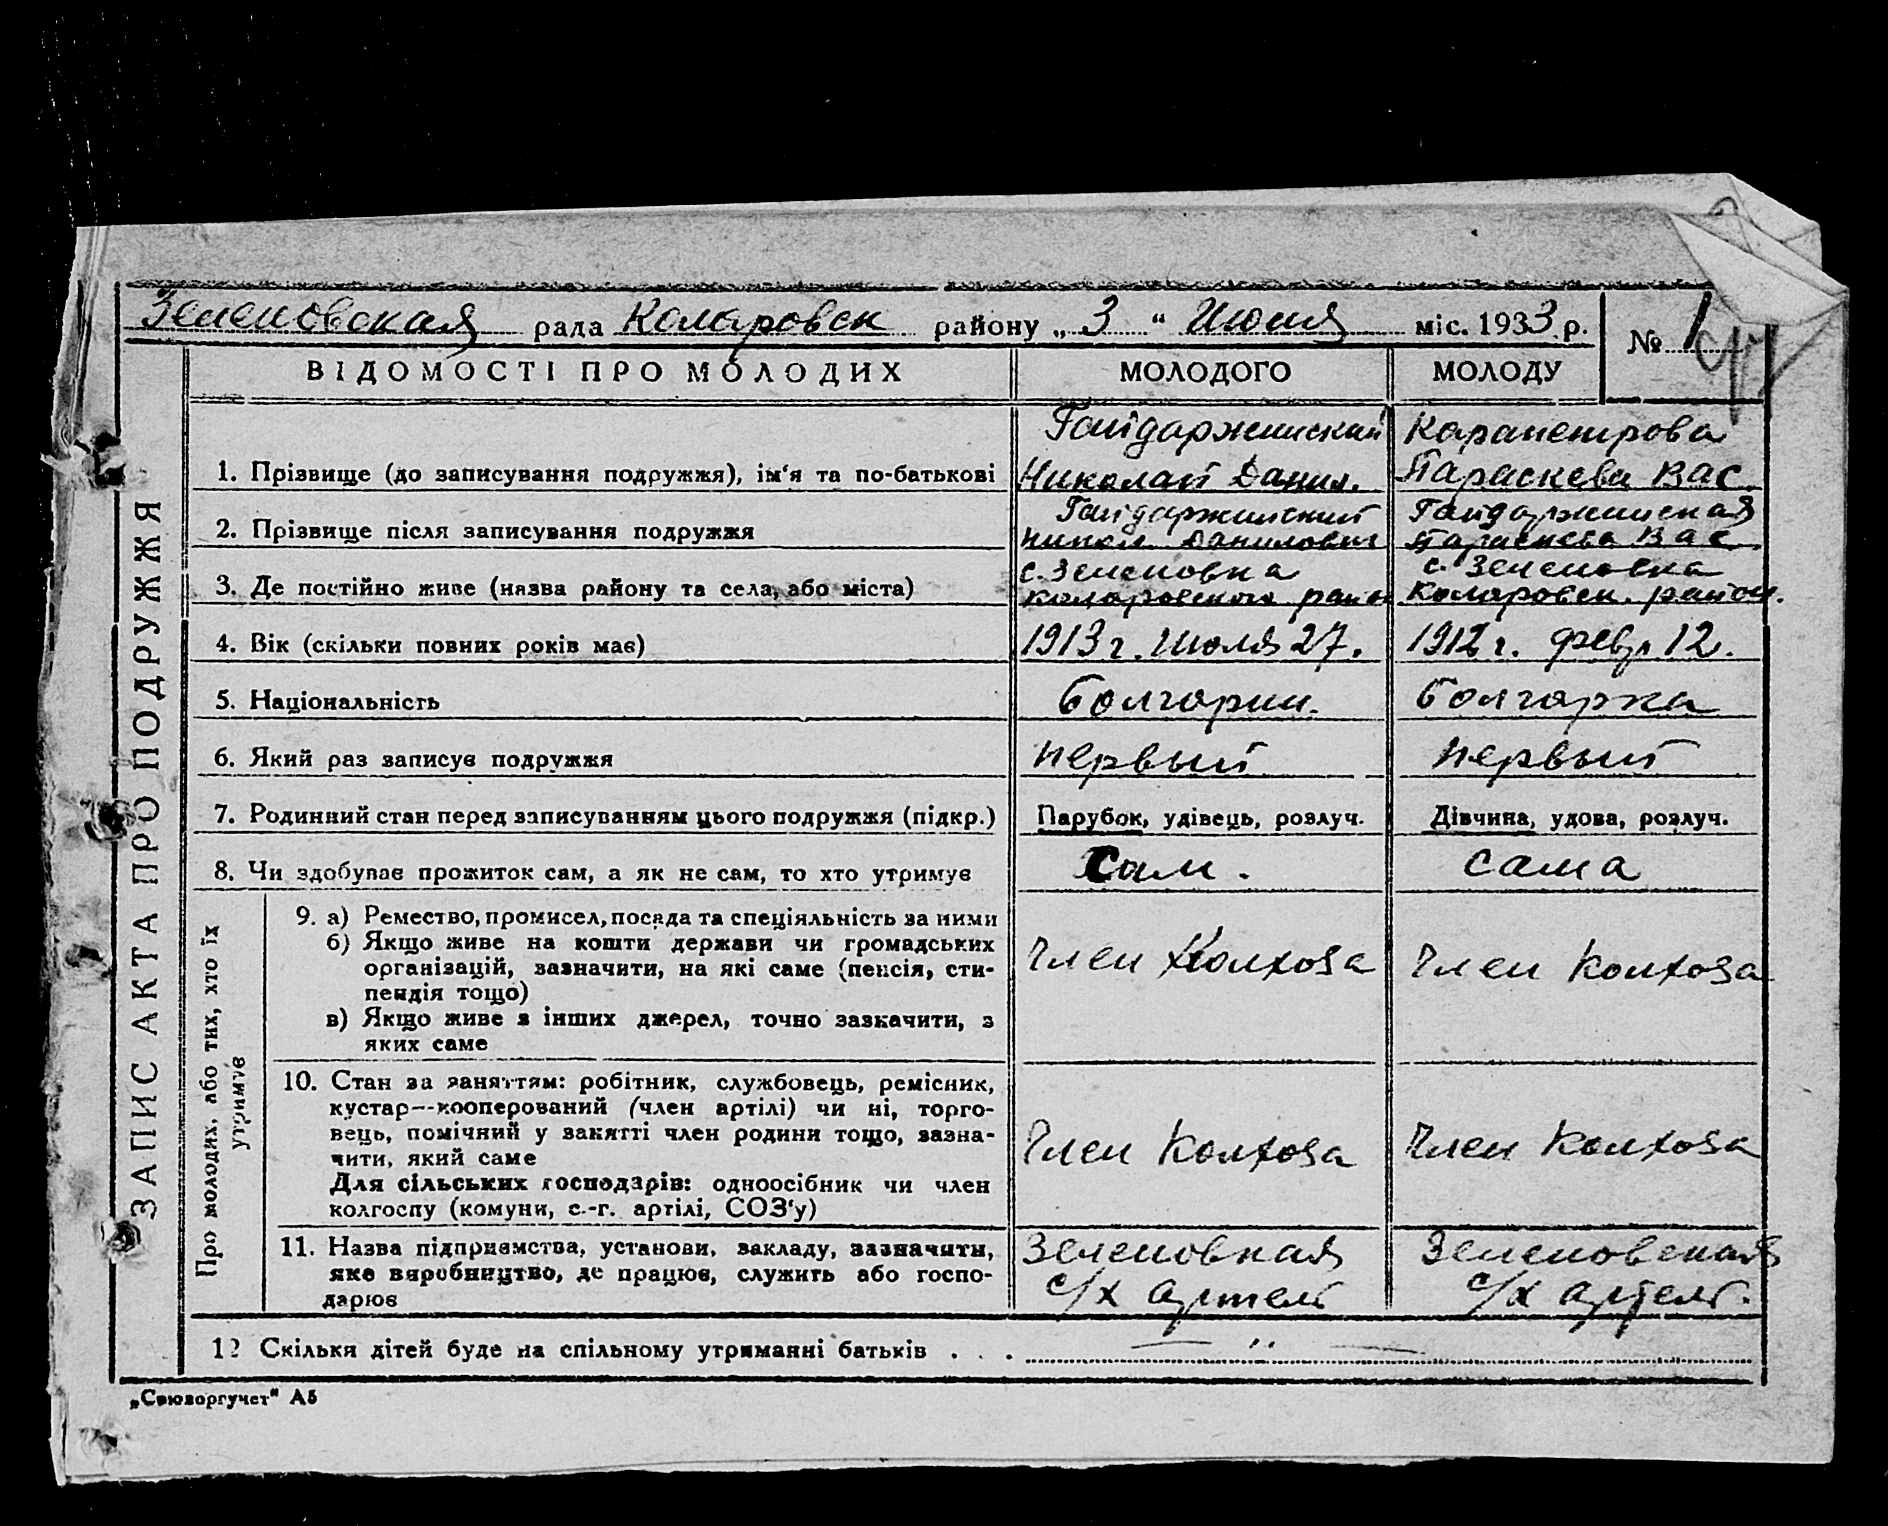 Зеленовская рада Коларовск району „ 3 “ Июня міс. 1933 р.
№ 1
ВІДОМОСТІ ПРО МОЛОДИХ
МОЛОДОГО
МОЛОДУ
ЗАПИС АКТА ПРО ПОДРУЖЖЯ
1. Прізвище (до записування подружжя), ім‘я та по-батькові
Гайдаржийский
Николай Данил.
Карапетрова
Параскева Вас.
2. Прізвище після записування подружжя
Гайдаржийский
Никол. Данилович
Гайдаржийская
Параскева Вас.
3. Де постійно живе (назва району та села, або міста)
с. Зеленовка
Коларовского район
с. Зеленовка
Коларовск. район.
4. Вік (скільки повних років має)
1913 г. Июля 27.
1912 г. февр. 12.
5. Національність
Болгарин.
Болгарка
6. Який раз записує подружжя
первый
первый
7. Родинний стан перед записуванням цього подружжя (підкр.)
Парубок, удівець, розлуч.
Дівчина, удова, розлуч.
8. Чи здобуває прожиток сам, а як не сам, то хто утримує
Сам.
сама
Про молодих, або тих, хто їх
утримує
9. а) Ремество, промисел, посада та спеціяльність за ними
б) Якщо живе на кошти держави чи громадських
організацій, зазначити, на які саме (пенсія, сти-
пендія тощо)
в) Якщо живе з інших джерел, точно зазначити, з
яких саме
Член Колхоза
Член Колхоза
10. Стан за заняттям: робітник, службовець, ремісник,
кустар—кооперований (член артілі) чи ні, торго-
вець, помічний у занятті член родини тощо, зазна-
чити, який саме
Для сільських господарів: одноосібник чи член
колгоспу (комуни, с.-г. артілі, СОЗ‘у)
Член Колхоза
Член Колхоза
11. Назва підприємства, установи, закладу, зазначити,
яке виробництво, де працює, служить або госпо-
дарює
Зеленовкая
с/х артель
Зеленовская
с/х артель.
12 Скільки дітей буде на спільному утриманні батьків . . .
— „ —
„Союзоргучет“ А5